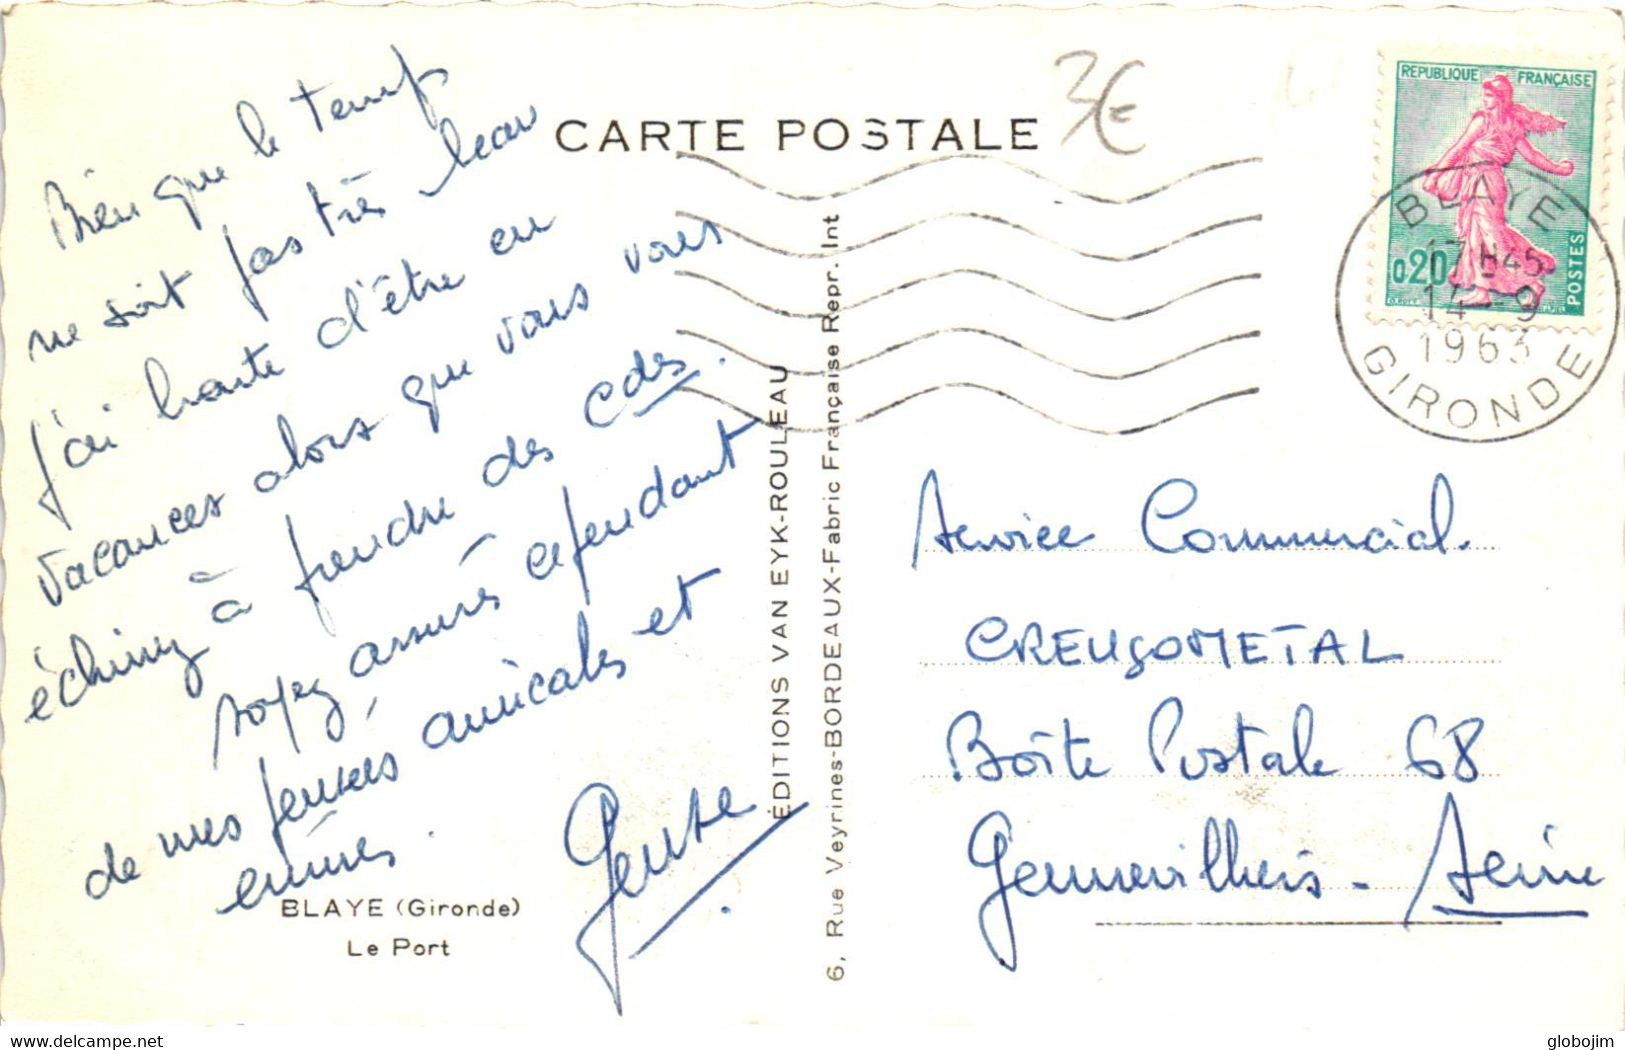 CARTE POSTALE
3€
Bien que le temps
ne soit pas très beau
j'ai honte d'être en
vacances alors que vous vous
échinez à prendre des cdes.
Soyez, assurés cependant
de mes pensées amicales et
émues.
BLAYE (Gironde)
Le Port
ÉDITIONS VAN EYK-ROULEAU
6, Rue Veyrines-BORDEAUX-Fabric Française Repr. Int
REPUBLIQUE FRANÇAISE
0,20
POSTES
BLAYE
17H45
14-9
1963
GIRONDE
Service Commercial.
CREUSOMETAL
Boîte Postale 68
Gennevilliers - Seine
www.delcampe.net
globojim